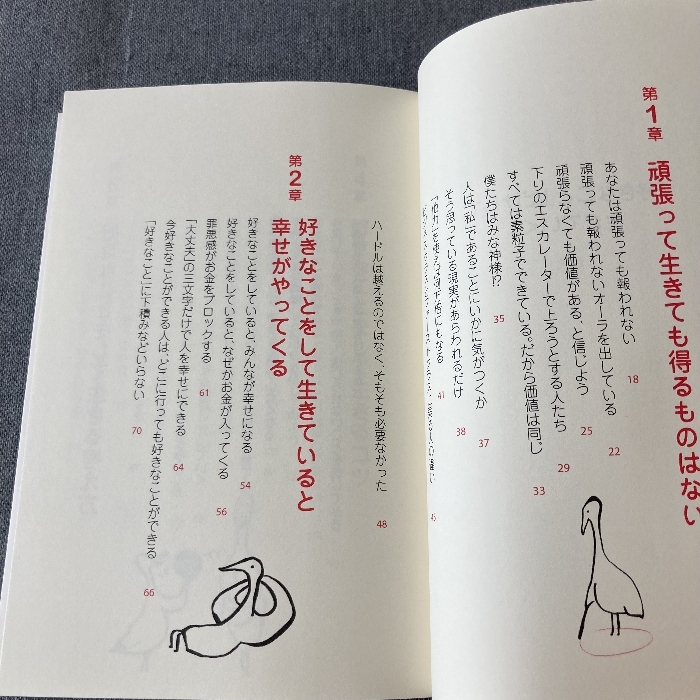 第1章 頑張って生きても得るものはない
あなたは頑張っても報われない 18
頑張っても報われないオーラを出している 22
頑張らなくても価値がある、と信じよう 25
下りのエスカレーターで上ろうとする人たち 29
すべては素粒子でできている。だから価値は同じ 33
僕たちはみな神様!? 35
人は「私」であることにいかに気がつくか 37
そう思っている現実があらわれるだけ 38
「他力」を にもなる 41
45
ハードルは越えるのではなく、そもそも必要なかった 48
第2章 好きなことをして生きていると
幸せがやってくる
好きなことをしていると、みんなが幸せになる 54
好きなことをしていると、なぜかお金が入ってくる 56
罪悪感がお金をブロックする 61
「大丈夫」の三文字だけで人を幸せにできる 64
今好きなことができる人は、どこに行っても好きなことができる 66
「好きなこと」に下積みなどいらない 70